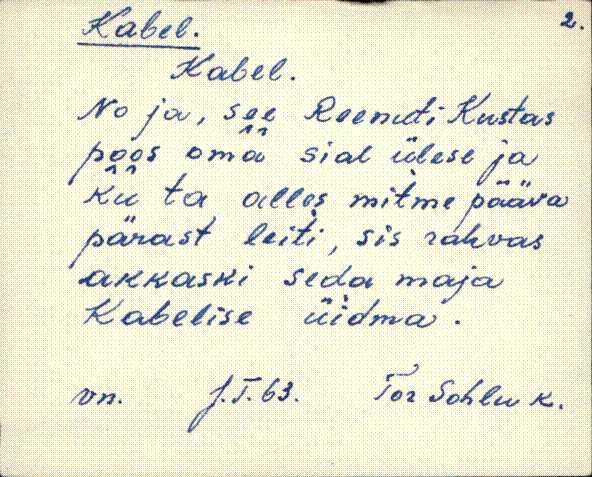 Kabel. 2.
Kabel.
No ja, see Reenuti Kustas
poos omä sial ülese ja
kũ ta alles mitme pääva
pärast leiti, sis rahvas
akkaski seda maja
Kabelise üidma.
vn. J.T.63. Tor Sohlu k.